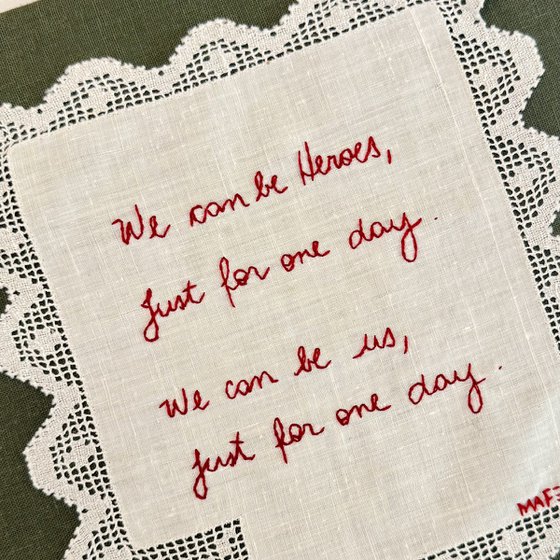 We can be Heroes,
Just for one day.
We can be us,
Just for one day.